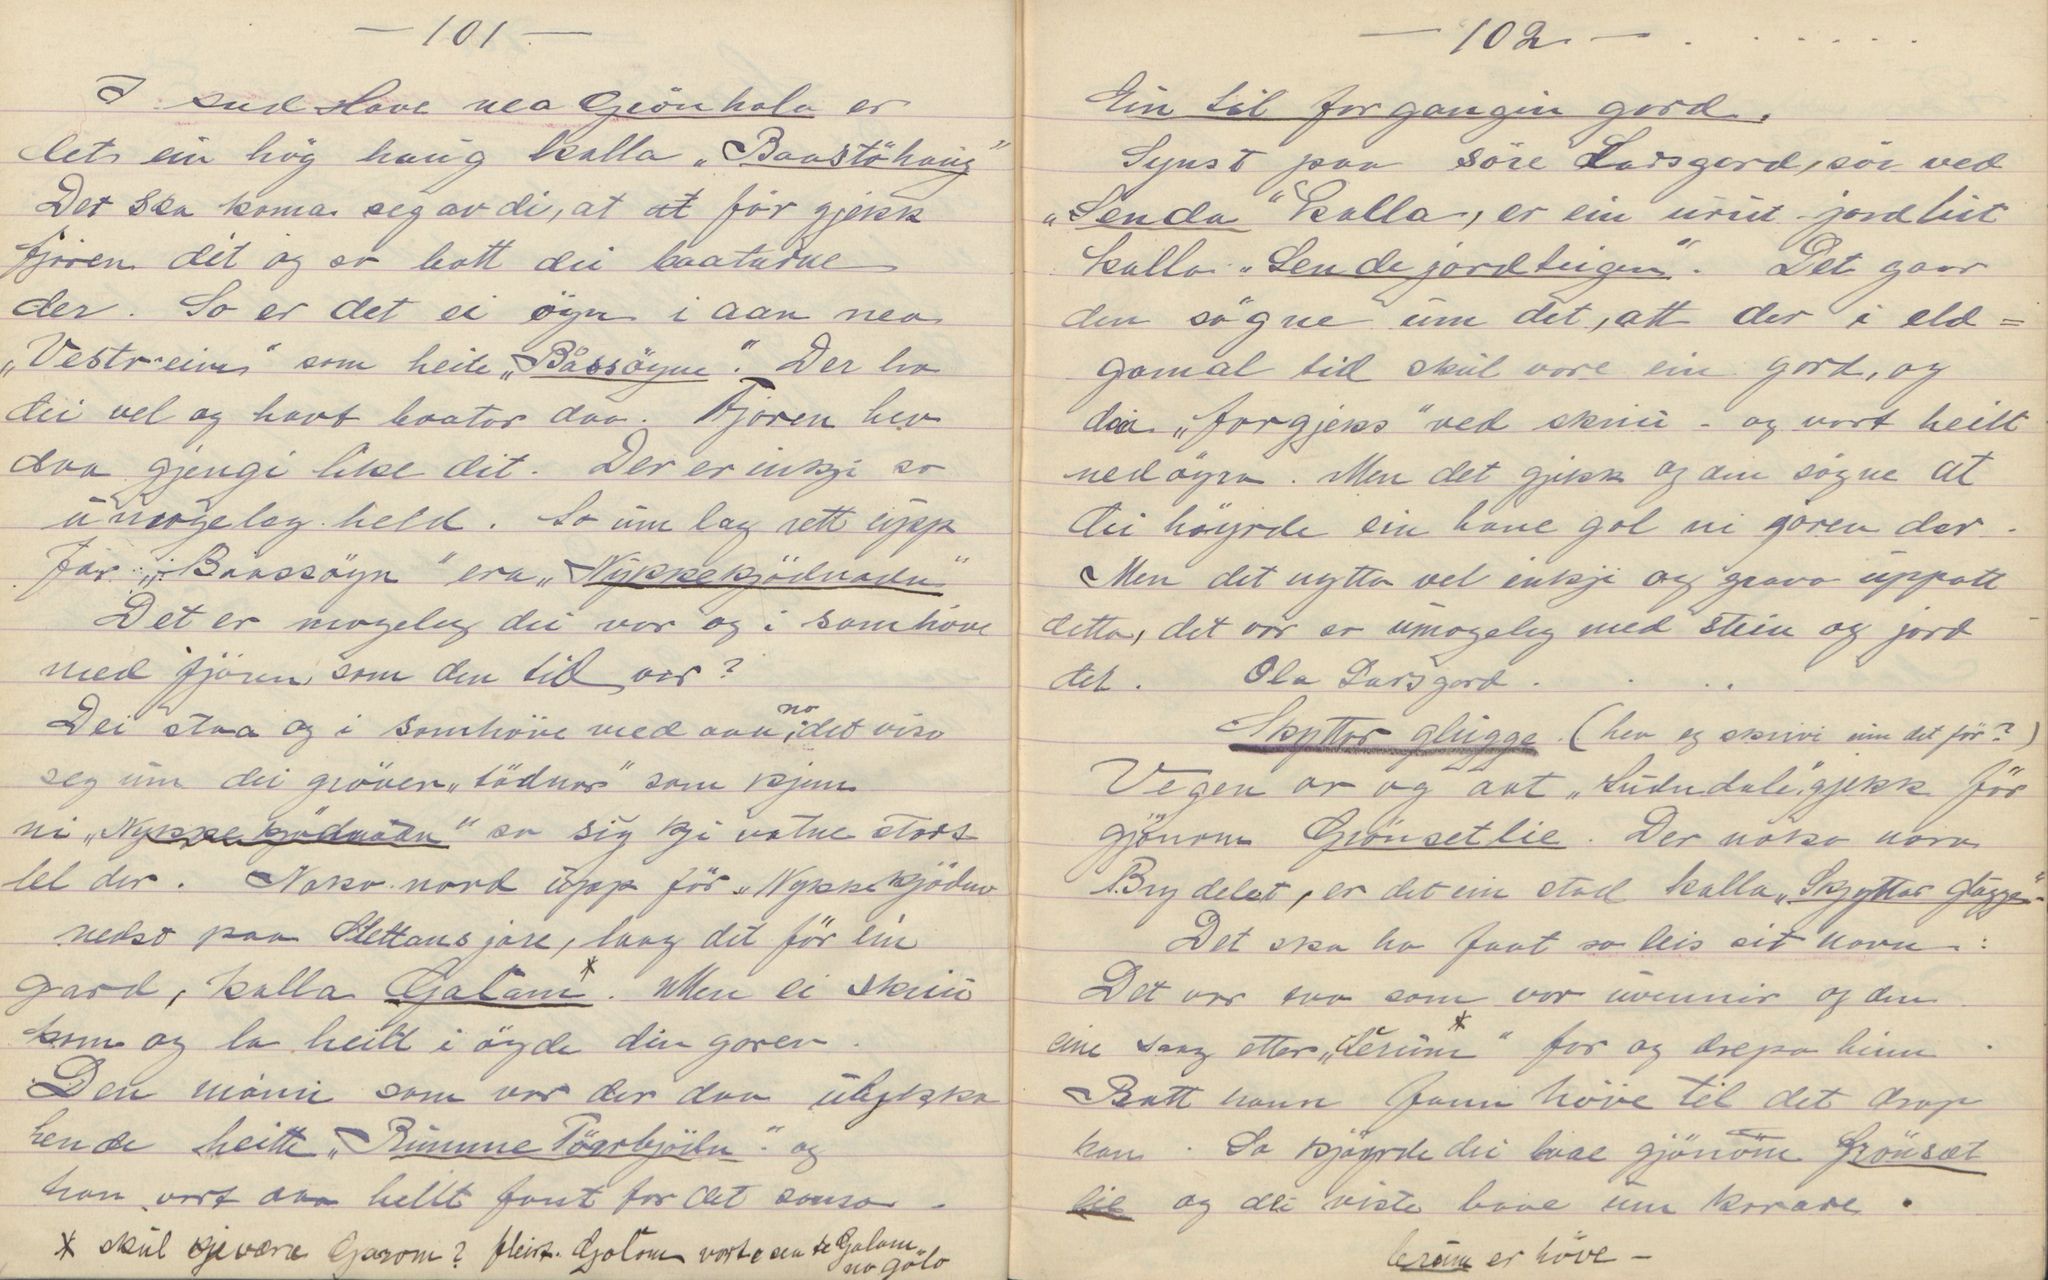 — 101 —
I sud Hove nea Grönhola er
det ein hög haug kalla „Baastöhaug"
Det ska koma seg av di, at för gjekk
fjören dit og so hatt dei baatadne
der. So er det ei öyn i aan nea
„Vestreim" som heite „Båssöyne". Der ha
dei vel og havt baatar daa. Fjören hev
daa gjengi like dit. Der er inkji so
umogeleg held. So um lag rett upp
for „Baassöyn" era „Nykkekjödnadn"
Det er mogeleg dei var og i samhöve
med fjören som den tid var?
Dei staa og i samhöve med aan no; det visa
seg um dei gröver „tödnar" som kjem
ni „Nykkekjödnadn" so sig kji vatne stors
lel der. Noko nord upp för „Nykkekjödnv
nedst paa Slettans jore, laag det för ein
gard, kalla Galam*. Men ei skriu
kom og la heilt i öyde din goren.
Den mannen som var der daa ulykka
hende heitte „Rumme Tögrbjödn" og
han vart daa heilt fant for det somso.
* skul kje være Garom? fleirt. Galom vort e sea te Galam
no galo
— 102 —
Ein til forgangin gord.
Synst paa söre Larsgord, sör ved
„Senda" kalla, er ein urut jordbit
kalla „Sendejordteigen". Det gaar
den sögne um det, att der i eld=
gamal tid skul vore ein gord, og
din „forgjekk" ved skriu - og vart heilt
nedöyra. Men det gjekk og den sögne at
dei höyrde ein hane gol ni goren der.
Men det nytta vel inkji og grava uppatt
detta, det var so umogeleg med stein og jord
det. Ola Larsgord.
Skyttar glugge. (hev eg skrivi um det för?)
Vegen or og aat „Sudndale" gjekk för
gjönom Grönsetlie. Der noko nora
Brydelet, er det ein stad kalla „Skyttar glugge"
Det ska ha faat so leis sit navn:
Det var tvo som var uvennir og den
eine saag etter „lerum*" for og drepa hinn
Batt hann fann höve til det drap
han. So kjöyrde dei baae gjönöm Grönset
lie og dei viste baae um korare.
lerum er höve —